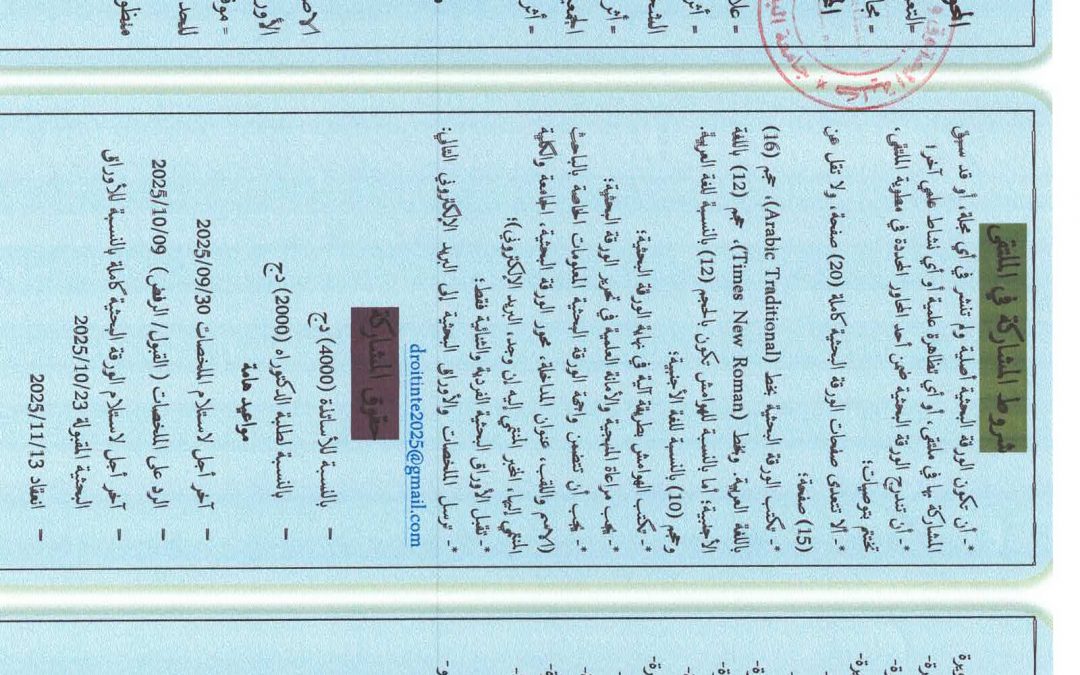 شروط المشاركة في الملتقى
*- أن تكون الورقة البحثية أصلية ولم تنشر في أي مجلة، أو قد سبق
المشاركة بها في ملتقى، أو أي تظاهرة علمية أو أي نشاط علمي آخر؛
*- أن تندرج الورقة البحثية ضمن أحد المحاور المحددة في مطوية الملتقى،
تختتم بتوصيات؛
*- ألا تتعدى صفحات الورقة البحثية كاملة (20) صفحة، ولا تقل عن
(15) صفحة؛
*- تكتب الورقة البحثية بخط (Arabic Traditional)، حجم (16)
باللغة العربية، وبخط (Times New Roman)، حجم (12) باللغة
الأجنبية؛ أما بالنسبة للهوامش تكون بالحجم (12) بالنسبة للغة العربية.
وحجم (10) بالنسبة للغة الأجنبية؛
*- تكتب الهوامش بطريقة آلية في نهاية الورقة البحثية؛
*- يجب مراعاة المنهجية والأمانة العلمية في تحرير الورقة البحثية؛
*- يجب أن تتضمن واجهة الورقة البحثية المعلومات الخاصة بالباحث
(الاسم واللقب، عنوان المداخلة، محور الورقة البحثية، الجامعة والكلية
المنتمي إليها، المخبر المنتمي إليه إن وجد، البريد الإلكتروني)؛
*- تقبل الأوراق البحثية الفردية والثنائية فقط؛
*- ترسل الملخصات والأوراق البحثية إلى البريد الإلكتروني التالي:
droitinte2025@gmail.com
حقوق المشاركة
- بالنسبة للأساتذة (4000) دج
- بالنسبة لطلبة الدكتوراه (2000) دج
مواعيد هامة
- آخر أجل لاستلام الملخصات 2025/09/30
- الرد على الملخصات ( القبول/ الرفض) 2025/10/09
- آخر أجل لاستلام الورقة البحثية كاملة بالنسبة للأوراق
البحثية المقبولة 2025/10/23
- انعقاد 2025/11/13